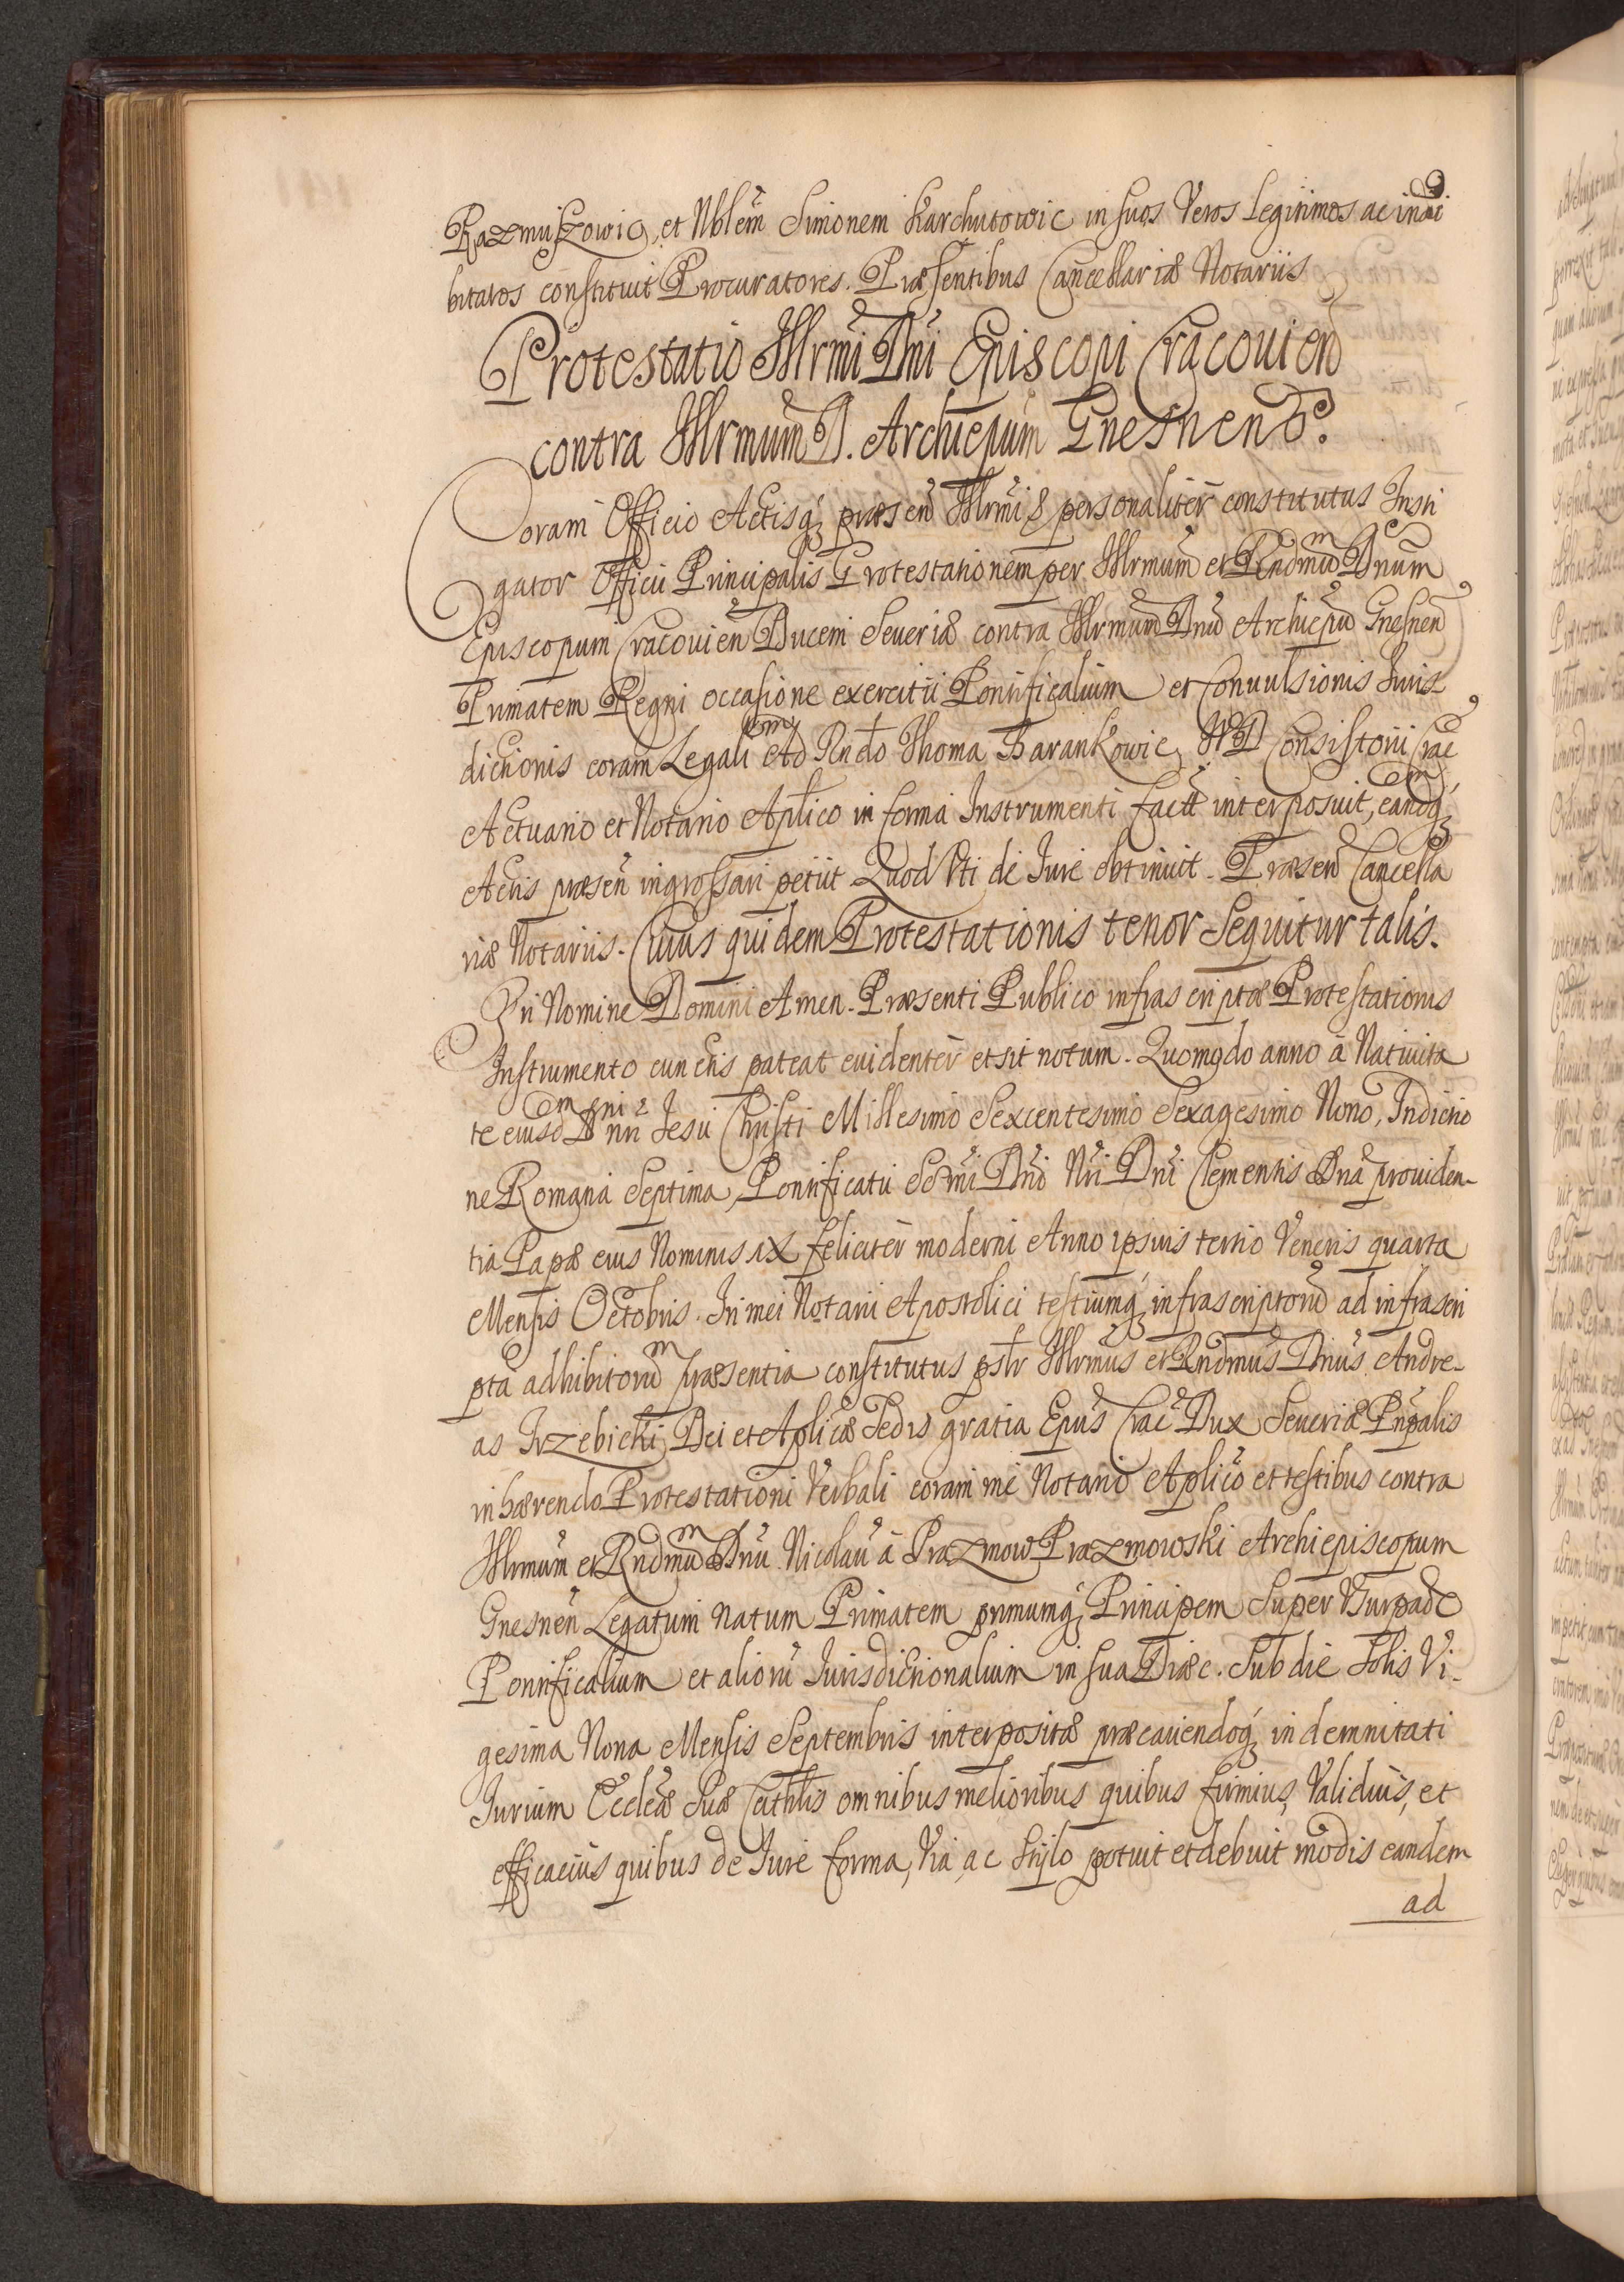 Razmuszowic, et Nblem Simonem Karchutowic in suos Veros Legitimos ac indu
bitatos constituit Procuratores. Præsentibus Cancellariæ Notariis
Protestatio Illrmi Dni Episcopi Cracouien
contra Illrmum D. Archiepum Gnesnen.
Coram Officio Actisq præsen Illrmis personaliter constitutus Insti
gator Officii Principalis Protestationem per Illrmum et Rndmum Dnum
Episcopum Cracouien Ducem Seueriæ contra Illrmum Dnu Archiepu Gnesnen
Primatem Regni occasione exercitii Pontificalium et Conuulsionis Juris
dictionis coram Legali Ad Rndo Thoma Barankowic Consistorii Crac
Actuario et Notario Aplico in forma Instrumenti facta interposuit, eandemq
Actis præsen ingrossari petiit Quod Uti de Jure obtinuit. Præsen Cancella
riæ Notariis. Cuius quidem Protestationis tenor Sequitur talis.
In Nomine Domini Amen. Præsenti Publico infrascriptæ Protestationis
Instrumento cunctis pateat euidenter et sit notum. Quomodo anno à Natiuita
te eiusdem Dni nri Jesu Christi Millesimo Sexcentesimo Sexagesimo Nono, Indictio
ne Romana Septima, Pontificatu Scmi Dni Nri Dni Clementis Dna prouiden-
tia Papæ eius Nominis IX feliciter moderni Anno ipsius tertio Veneris quarta
Mensis Octobris. In mei Notarii Apostolici testiumq infrascriptoru ad infrascri
pta adhibitorum præsentia constitutus pslr Illrmus et Rndmus Dnus Andre-
as Trzebicki Dei et Aplicæ Sedis gratia Epus Crac Dux Seueriæ Prpalis
inhærendo Protestationi Verbali coram me Notario Aplico et testibus contra
Illrmum et Rndmum Dnu Nicolau à Prazmow Prazmowski Archiepiscopum
Gnesnen Legatum natum Primatem primumq Principem Super Vsurpaõe
Pontificalium et alioru Jurisdictionalium in sua Diæc. Sub die Solis Vi-
gesima Nona Mensis Septembris interpositæ præcauendoq indemnitati
Jurium Ecclæ Suæ Cathlis omnibus melioribus quibus firmius, Validius, et
efficacius quibus de Jure forma, Via, ac Stylo potuit et debuit modis eandem
ad